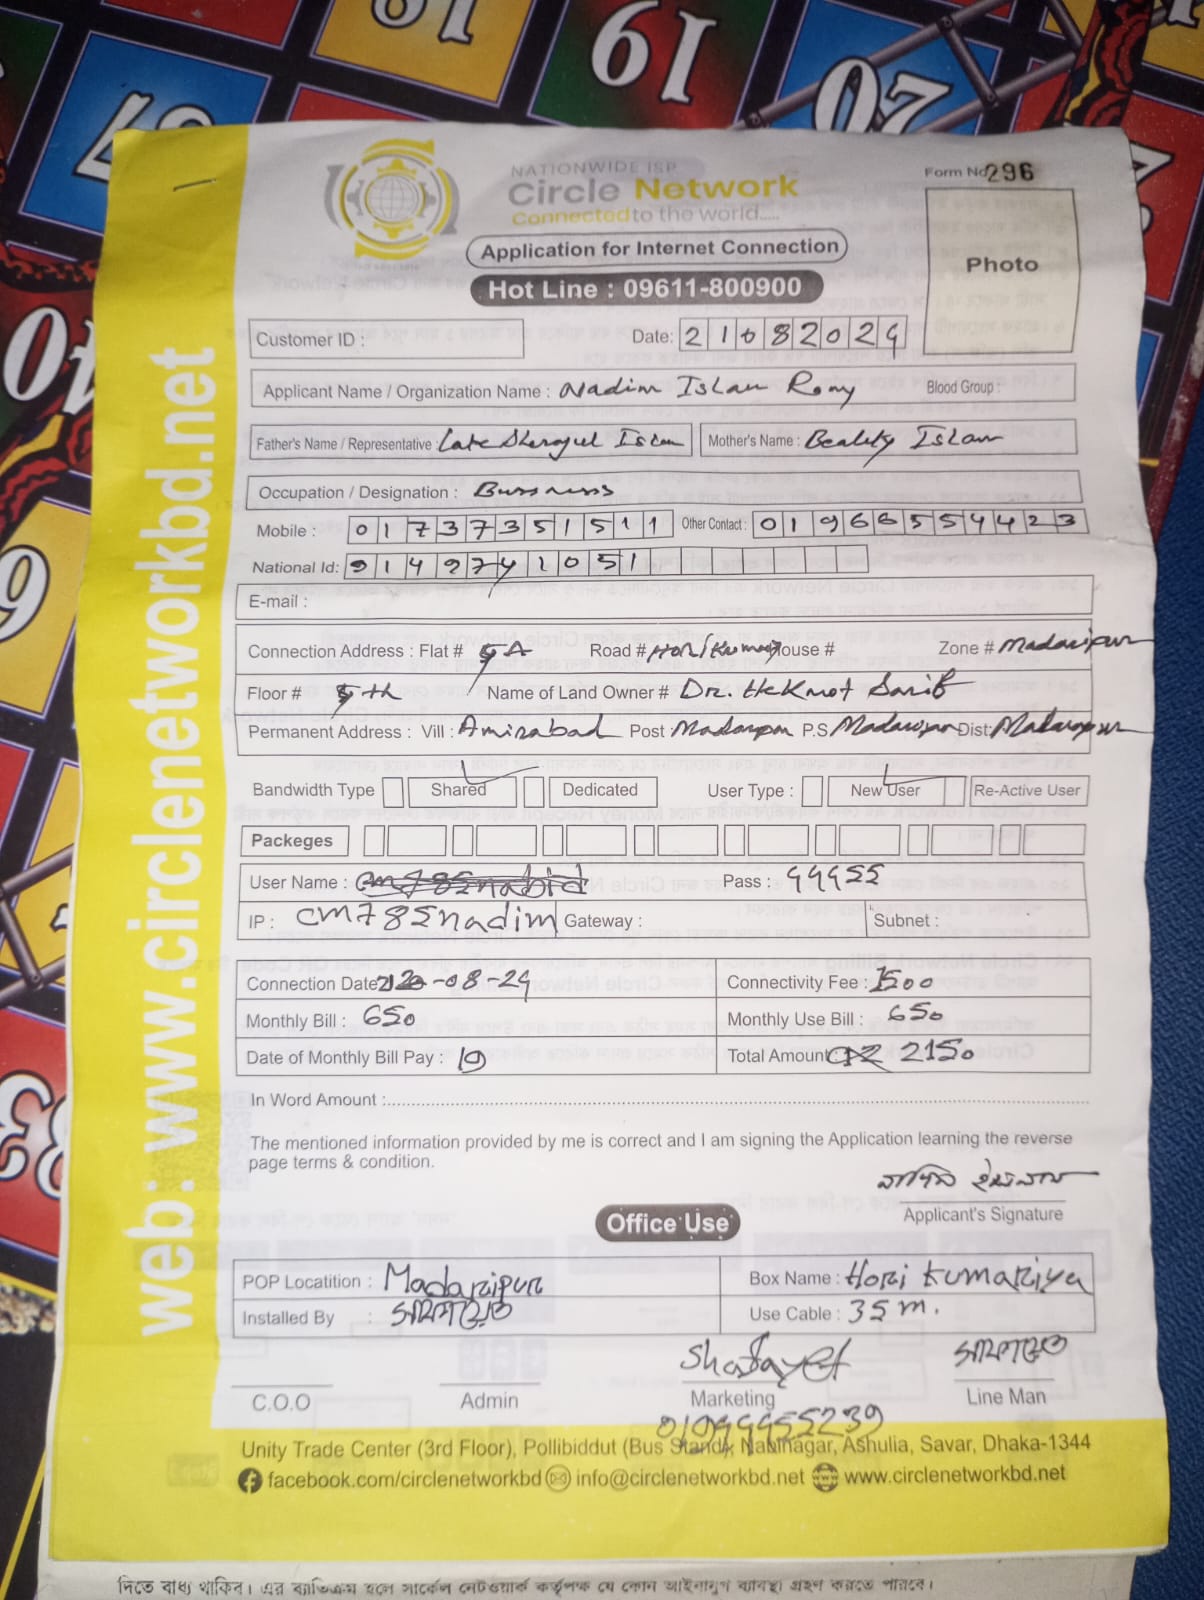 NATIONWIDE ISP
Circle Network
Connected to the world.....
Form No 296
Application for Internet Connection
Photo
Hot Line : 09611-800900
Customer ID :
Date: 21082024
Applicant Name / Organization Name : Nadim Islam Rony Blood Group :
Father's Name / Representative : Late Islam Mother's Name : Islam
Occupation / Designation : Bussness
Mobile : 01737351511 Other Contact : 01966554423
National Id: 9149741051
E-mail :
Connection Address : Flat # 5A Road # House # Zone # Madaripur
Floor # 5th Name of Land Owner # Dr. Hekmot Sarif
Permanent Address : Vill : Amirabad Post : Madaripur P.S Madaripur Dist: Madaripur
Bandwidth Type Shared Dedicated User Type : New User Re-Active User
Packeges
User Name : cm785nabid Pass : 99955
IP : cm785nadim Gateway : Subnet :
Connection Date -08-24 Connectivity Fee : 1500
Monthly Bill : 650 Monthly Use Bill : 650
Date of Monthly Bill Pay : 10 Total Amount : 2150
In Word Amount :
The mentioned information provided by me is correct and I am signing the Application learning the reverse
page terms & condition.
Applicant's Signature
Office Use
POP Locatition : Madaripur Box Name : Hori Kumariya
Installed By : Use Cable : 35 m.
Shafayet
C.O.O Admin Marketing Line Man
Unity Trade Center (3rd Floor), Pollibiddut (Bus Stand), Nabinagar, Ashulia, Savar, Dhaka-1344
facebook.com/circlenetworkbd info@circlenetworkbd.net www.circlenetworkbd.net
web: www.circlenetworkbd.net
দিতে বাধ্য থাকিব। এর ব্যতিক্রম হলে সার্কেল নেটওয়ার্ক কর্তৃপক্ষ যে কোন আইনানুগ ব্যবস্থা গ্রহণ করতে পারবে।
19
20
40